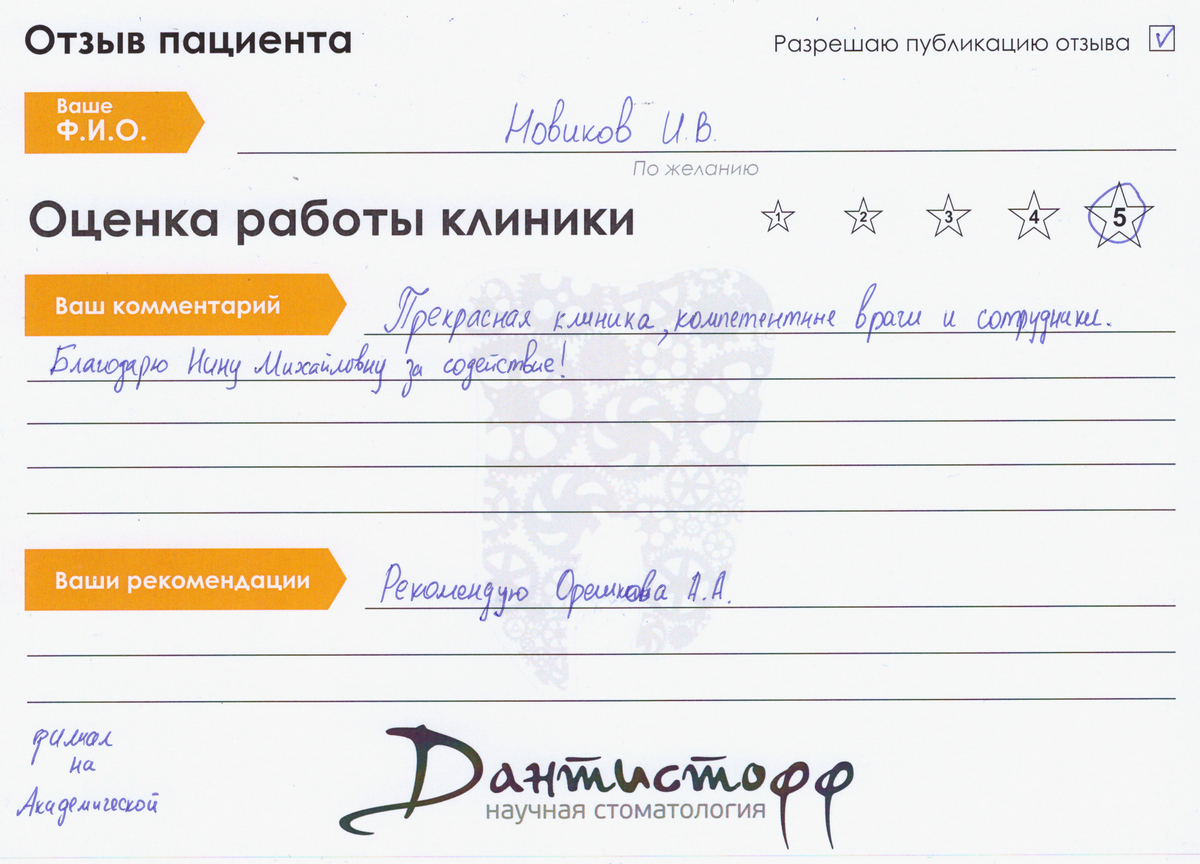 Отзыв пациента
Разрешаю публикацию отзыва
Ваше
Ф.И.О.
Новиков И.В.
По желанию
Оценка работы клиники
1 2 3 4 5
Ваш комментарий
Прекрасная клиника, компетентные врачи и сотрудники.
Благодарю Нину Михайловну за содействие!
Ваши рекомендации
Рекомендую Орешкова А.А.
филиал
на
Академической
Дантистофф
научная стоматология